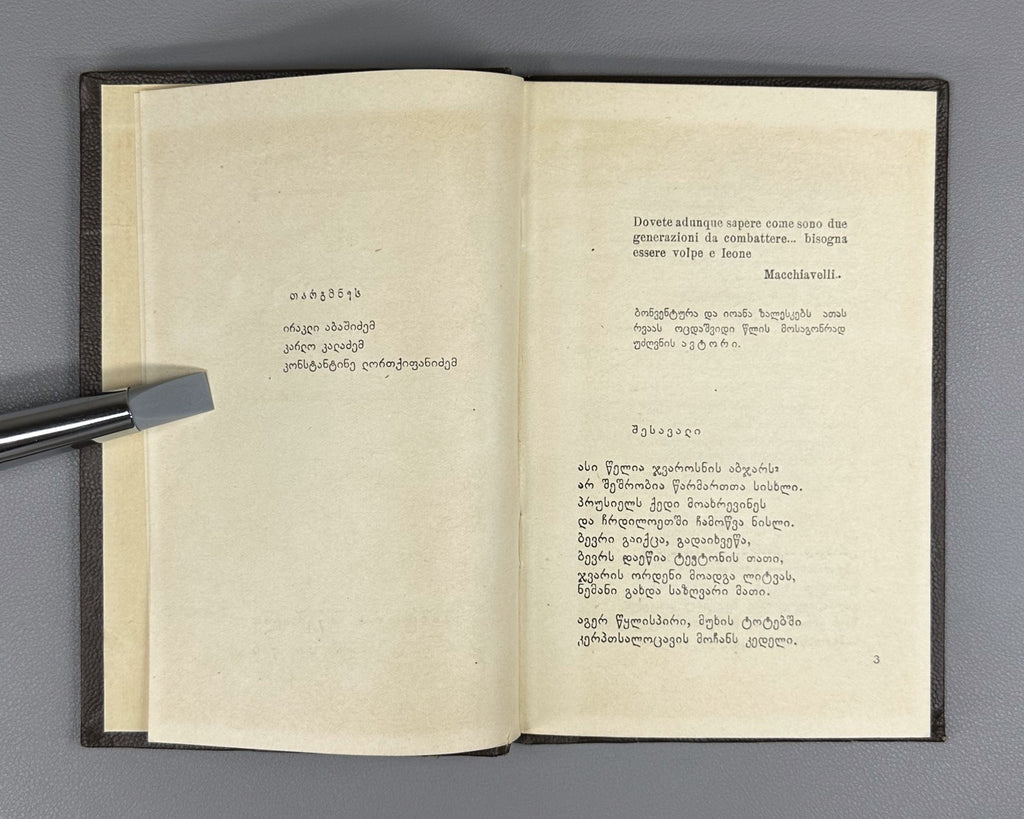 თარგმნეს
ირაკლი აბაშიძემ
კარლო კალაძემ
კონსტანტინე ლორთქიფანიძემ
Dovete adunque sapere come sono due
generazioni da combattere... bisogna
essere volpe e leone
Macchiavelli.
ბონვენტურა და იოანა ზალესკებს ათას
რვაას ოცდაშვიდი წლის მოსაგონრად
უძღვნის ავტორი.
შესავალი
ასი წელია ჯვაროსნის აბჯარს
არ შეშრობია წარმართთა სისხლი.
პრუსიელს ქედი მოახრევინეს
და ჩრდილოეთში ჩამოწვა ნისლი.
ბევრი გაიქცა, გადაიხვეწა,
ბევრს დაეწია ტევტონის თათი,
ჯვარის ორდენი მოადგა ლიტვას,
ნემანი გახდა საზღვარი მათი.
აგერ წყლისპირი, მუხის ტოტებში
კერპთსალოცავის მოჩანს კედელი.
3